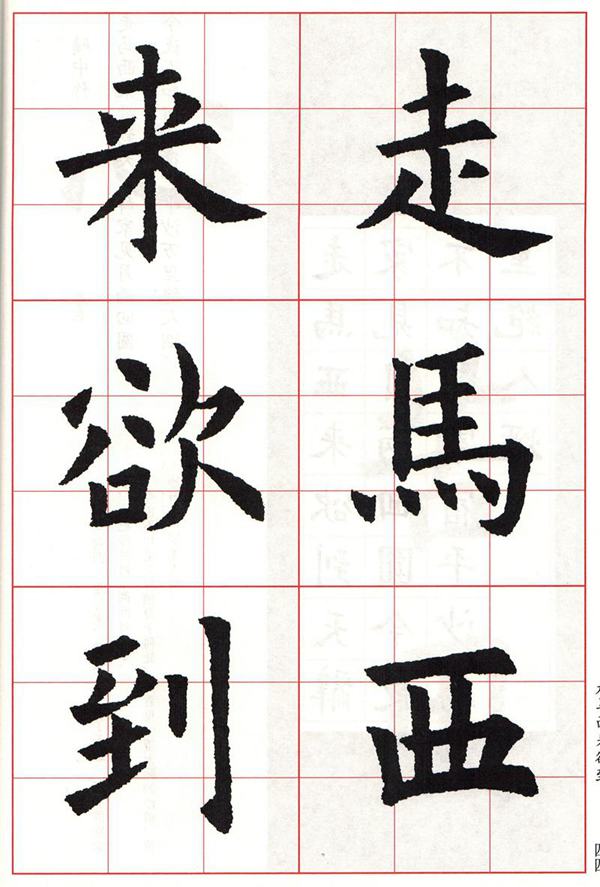 走馬西
来欲到